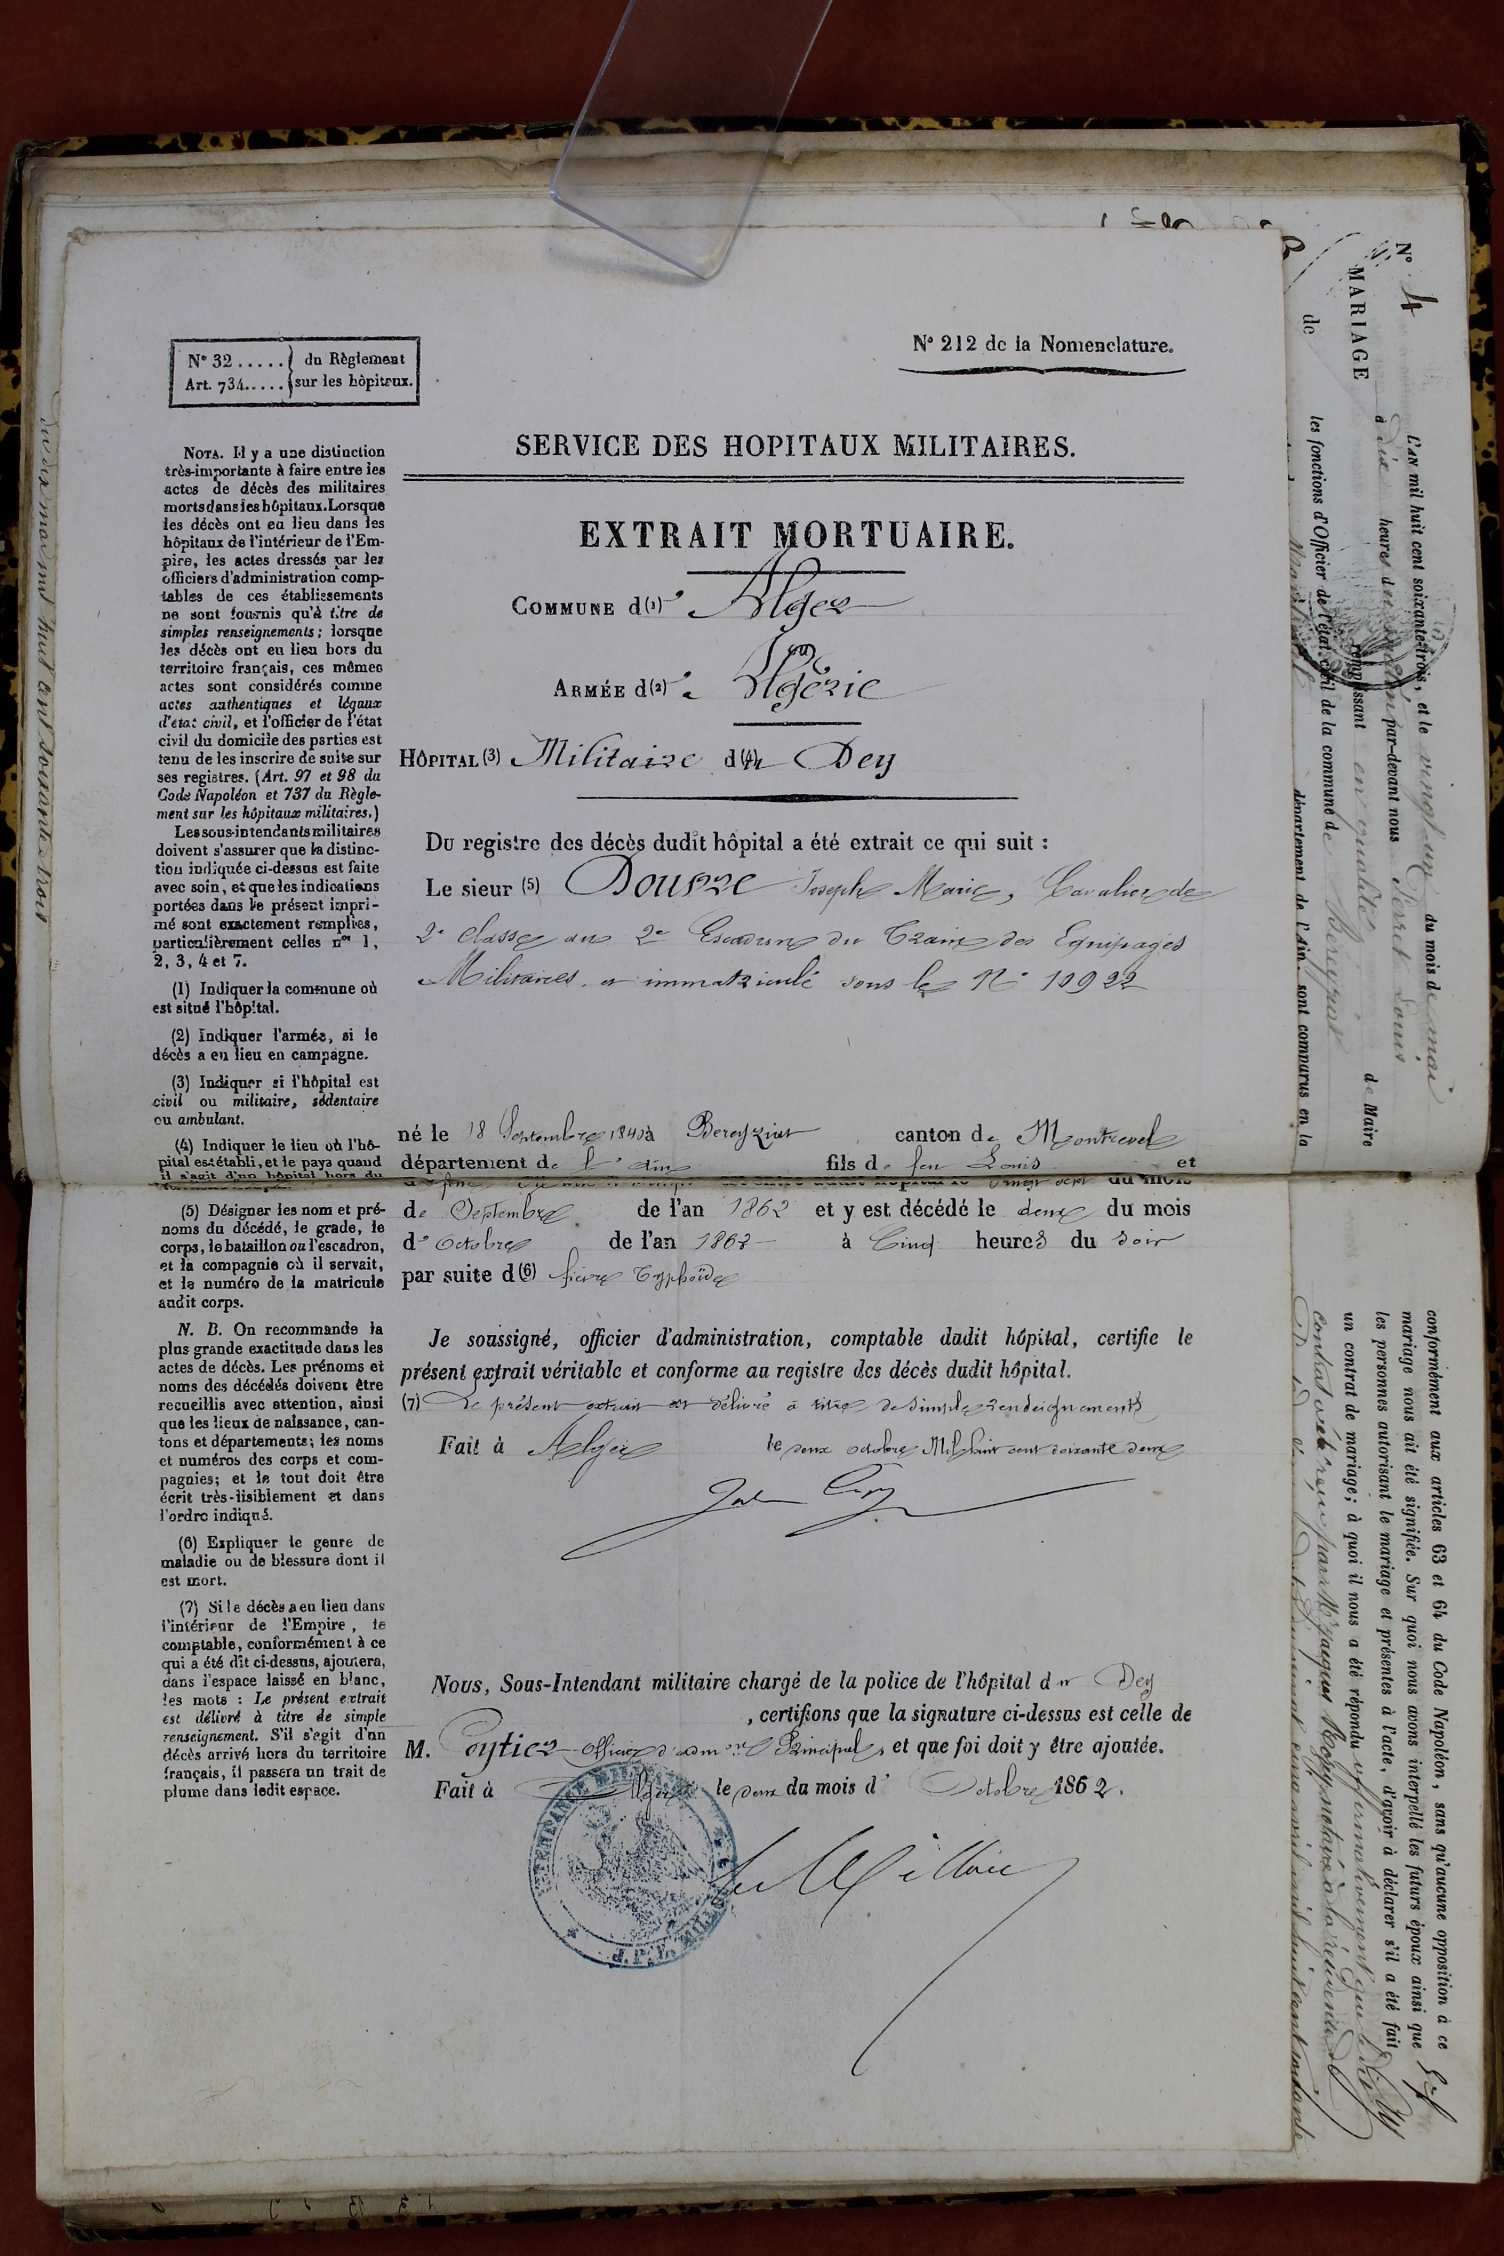 N° 32..... du Règlement
Art. 734..... sur les hôpitaux.
N° 212 de la Nomenclature.
SERVICE DES HOPITAUX MILITAIRES.
EXTRAIT MORTUAIRE.
COMMUNE d(1)' Alger
ARMÉE d(2)' Algérie
HÔPITAL (3) Militaire d(4)u Dey
Du registre des décès dudit hôpital a été extrait ce qui suit :
Le sieur (5) Joseph Marie, Cavalier de
2e classe au 2e Escadron du Train des Equipages
Militaires et immatriculé sous le N° 10922
né le 18 Septembre 1840 à Bereyziat canton de Montrevel
département de l'ain fils de feu Louis et
de Septembre de l'an 1862 et y est décédé le deux du mois
d'Octobre de l'an 1862 à Cinq heures du soir
par suite d(6) fièvre Typhoïde
Je soussigné, officier d'administration, comptable dudit hôpital, certifie le
présent extrait véritable et conforme au registre des décès dudit hôpital.
(7) Le présent extrait est délivré à titre de simple renseignements
Fait à Alger le deux octobre Mil huit cent soixante deux
Nous, Sous-Intendant militaire chargé de la police de l'hôpital du Dey
, certifions que la signature ci-dessus est celle de
M. officier d'admon Principal, et que foi doit y être ajoutée.
Fait à Alger le deux du mois d'Octobre 1862.
NOTA. Il y a une distinction
très-importante à faire entre les
actes de décès des militaires
morts dans les hôpitaux. Lorsque
les décès ont eu lieu dans les
hôpitaux de l'intérieur de l'Em-
pire, les actes dressés par les
officiers d'administration comp-
tables de ces établissements
ne sont fournis qu'à titre de
simples renseignements; lorsque
les décès ont eu lieu hors du
territoire français, ces mêmes
actes sont considérés comme
actes authentiques et légaux
d'état civil, et l'officier de l'état
civil du domicile des parties est
tenu de les inscrire de suite sur
ses registres. (Art. 97 et 98 du
Code Napoléon et 737 du Règle-
ment sur les hôpitaux militaires.)
Les sous-intendants militaires
doivent s'assurer que la distinc-
tion indiquée ci-dessus est faite
avec soin, et que les indications
portées dans le présent impri-
mé sont exactement remplies,
particulièrement celles nos 1,
2, 3, 4 et 7.
(1) Indiquer la commune où
est situé l'hôpital.
(2) Indiquer l'armée, si le
décès a eu lieu en campagne.
(3) Indiquer si l'hôpital est
civil ou militaire, sédentaire
ou ambulant.
(4) Indiquer le lieu où l'hô-
pital est établi, et le pays quand
il s'agit d'un hôpital hors du
(5) Désigner les nom et pré-
noms du décédé, le grade, le
corps, le bataillon ou l'escadron,
et la compagnie où il servait,
et le numéro de la matricule
audit corps.
N. B. On recommande la
plus grande exactitude dans les
actes de décès. Les prénoms et
noms des décédés doivent être
recueillis avec attention, ainsi
que les lieux de naissance, can-
tons et départements; les noms
et numéros des corps et com-
pagnies; et le tout doit être
écrit très-lisiblement et dans
l'ordre indiqué.
(6) Expliquer le genre de
maladie ou de blessure dont il
est mort.
(7) Si le décès a eu lieu dans
l'intérieur de l'Empire, le
comptable, conformément à ce
qui a été dit ci-dessus, ajoutera,
dans l'espace laissé en blanc,
les mots : Le présent extrait
est délivré à titre de simple
renseignement. S'il s'agit d'un
décès arrivé hors du territoire
français, il passera un trait de
plume dans ledit espace.
N° 4
MARIAGE
de
L'AN mil huit cent soixante-trois, et le vingt un du mois de mai
à dix heures du matin par-devant nous Perret Louis
remplissant en qualité de Maire
les fonctions d'Officier de l'état civil de la commune de Bereyziat
département de l'Ain. sont comparus en la
conformément aux articles 63 et 64 du Code Napoléon, sans qu'aucune opposition à ce
mariage nous ait été signifiée. Sur quoi nous avons interpellé les futurs époux ainsi que
les personnes autorisant le mariage et présentes à l'acte, d'avoir à déclarer s'il a été fait
un contrat de mariage; à quoi il nous a été répondu affirmativement que le dit